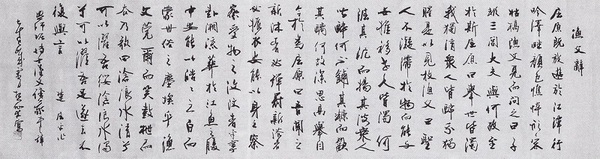 漁父辭
屈原既放遊於江潭行
吟澤畔顏色憔悴形容
枯槁漁父見而問之曰子
非三閭大夫與何故至
於斯屈原曰舉世皆濁
我獨清衆人皆醉我獨
醒是以見放漁父曰聖
人不凝滯於物而能與
世推移世人皆濁何
不淈其泥而揚其波衆人
皆醉何不餔其糟而歠
其醨何故深思高舉自
令放爲屈原曰吾聞之
新沐者必彈冠新浴者
必振衣安能以身之察
察受物之汶汶者乎寧
赴湘流葬於江魚之腹
中安能以皓皓之白而
蒙世俗之塵埃乎漁
父莞爾而笑鼓枻而
去乃歌曰滄浪水清兮
可以濯吾足遂去不
復與言